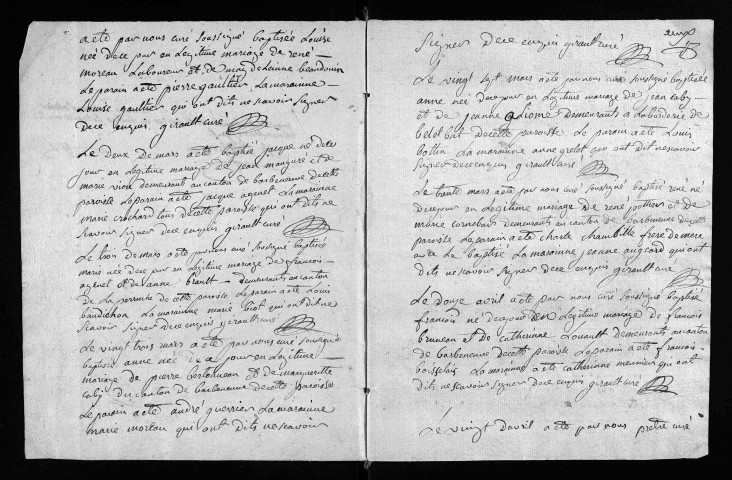 a eté par nous curé soussigné baptisée Louise
née dece jour en Legitime mariage de rené
moreau Laboureur et de magdeleinne beaudouin
Le parain a eté pierre gaultier La marainne
Louise gaultier qui ont dits ne scavoir signer
dece enquis girault curé
Le deux de mars a eté baptisé jacque né de ce
jour en Legitime mariage de jean maugure et de
marie viou demeurant au canton de barbeneuve decette
paroisse Le parain a eté jacque agenet La marainne
marie crochard tous decette paroisse qui ont dits ne
scavoir signer dece enquis girault curé
Le trois de mars a eté par nous curé soussigné baptisée
marie née dece jour en Legitime mariage de francois
agenet et de anne brault demeurants au canton
de La perruche de cette paroisse Le parain a eté Louis
baudichon La marainne marie biot qui ont dit ne
scavoir signer dece enquis girault curé
Le vingt trois mars a eté par nous curé soussigné
baptisée anne née de ce jour en Legitime
mariage de pierre bertonneau et de margueritte
caby du canton de barbeneuve decette paroisse
Le parain a eté andré guerrier La marainne
marie moreau qui ont dits ne scavoir
signer dece enquis girault curé
Le vingt sept mars a eté par nous curé soussigné baptisée
anne née dece jour en Legitime mariage de jean caby
et de jeanne demeurants a La borderie de
belesbat decette paroisse Le parain a eté Louis
bottin La marainne anne grelet qui ont dit ne scavoir
signer dece enquis girault curé
Le trente mars a eté par nous curé soussigné baptisé rené né
dece jour en Legitime mariage de rené pothier et de
marie cornebat demeurants au canton de barbeneuve decette
paroisse Le parain a eté charle chambille frere de mere
de Le baptisé La marainne jeanne augeard qui ont
dits ne scavoir signer dece enquis girault curé
Le douze avril a eté par nous curé soussigné baptisé
francois né dece jour en Legitime mariage de francois
bruneau et de catherinne Louault demeurants au canton
de barbeneuve decette paroisse Le parain a eté francois
boisselais La marainne a eté catherinne mesnier qui ont
dits ne scavoir signer dece enquis girault curé
Le vingt d'avril a eté par nous pretre curé